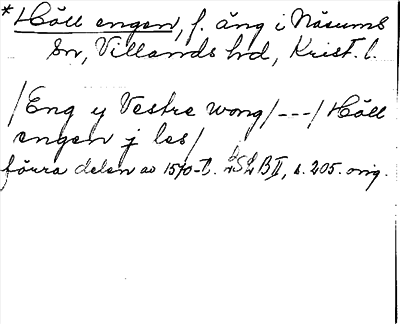 *Höll engen, f. äng i Näsums
sn, Villands hd, Krist. l.
/Eng y Vestre wong/---/Höll
engen j les/
förra delen av 1570-t. LSLB II, s. 205. orig.